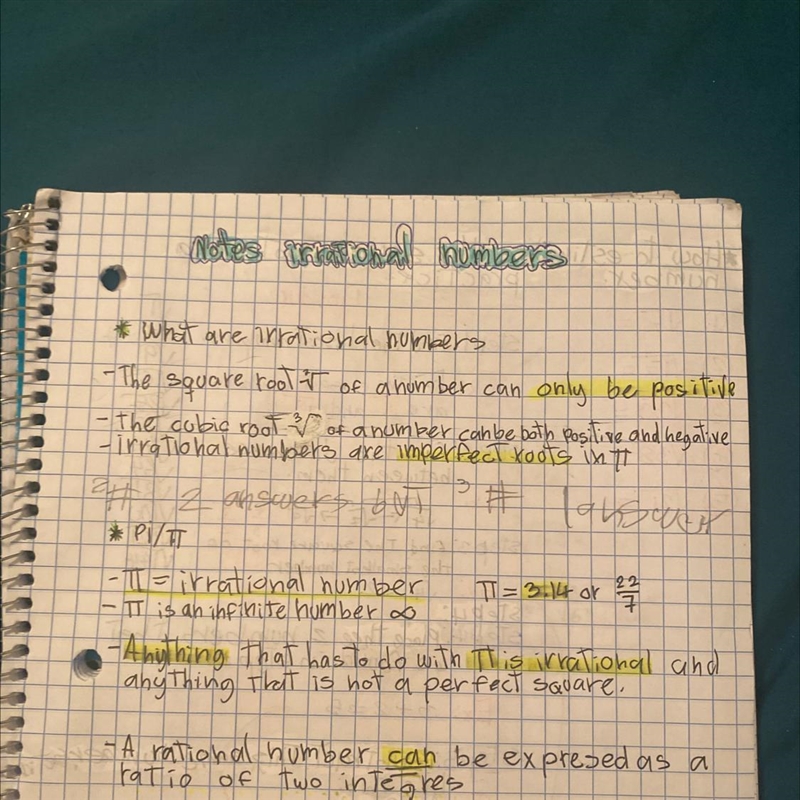 Notes irrational numbers
* What are irrational numbers
- The square root ²√ of a number can only be positive
- The cubic root ³√ of a number can be both positive and negative
- irrational numbers are imperfect roots in π
²# 2 answers ³# 1 answer
* Pi/π
- π = irrational number π = 3.14 or 22/7
- π is an infinite number ∞
- Anything that has to do with π is irrational and
anything that is not a perfect square.
- A rational number can be expresed as a
ratio of two integres